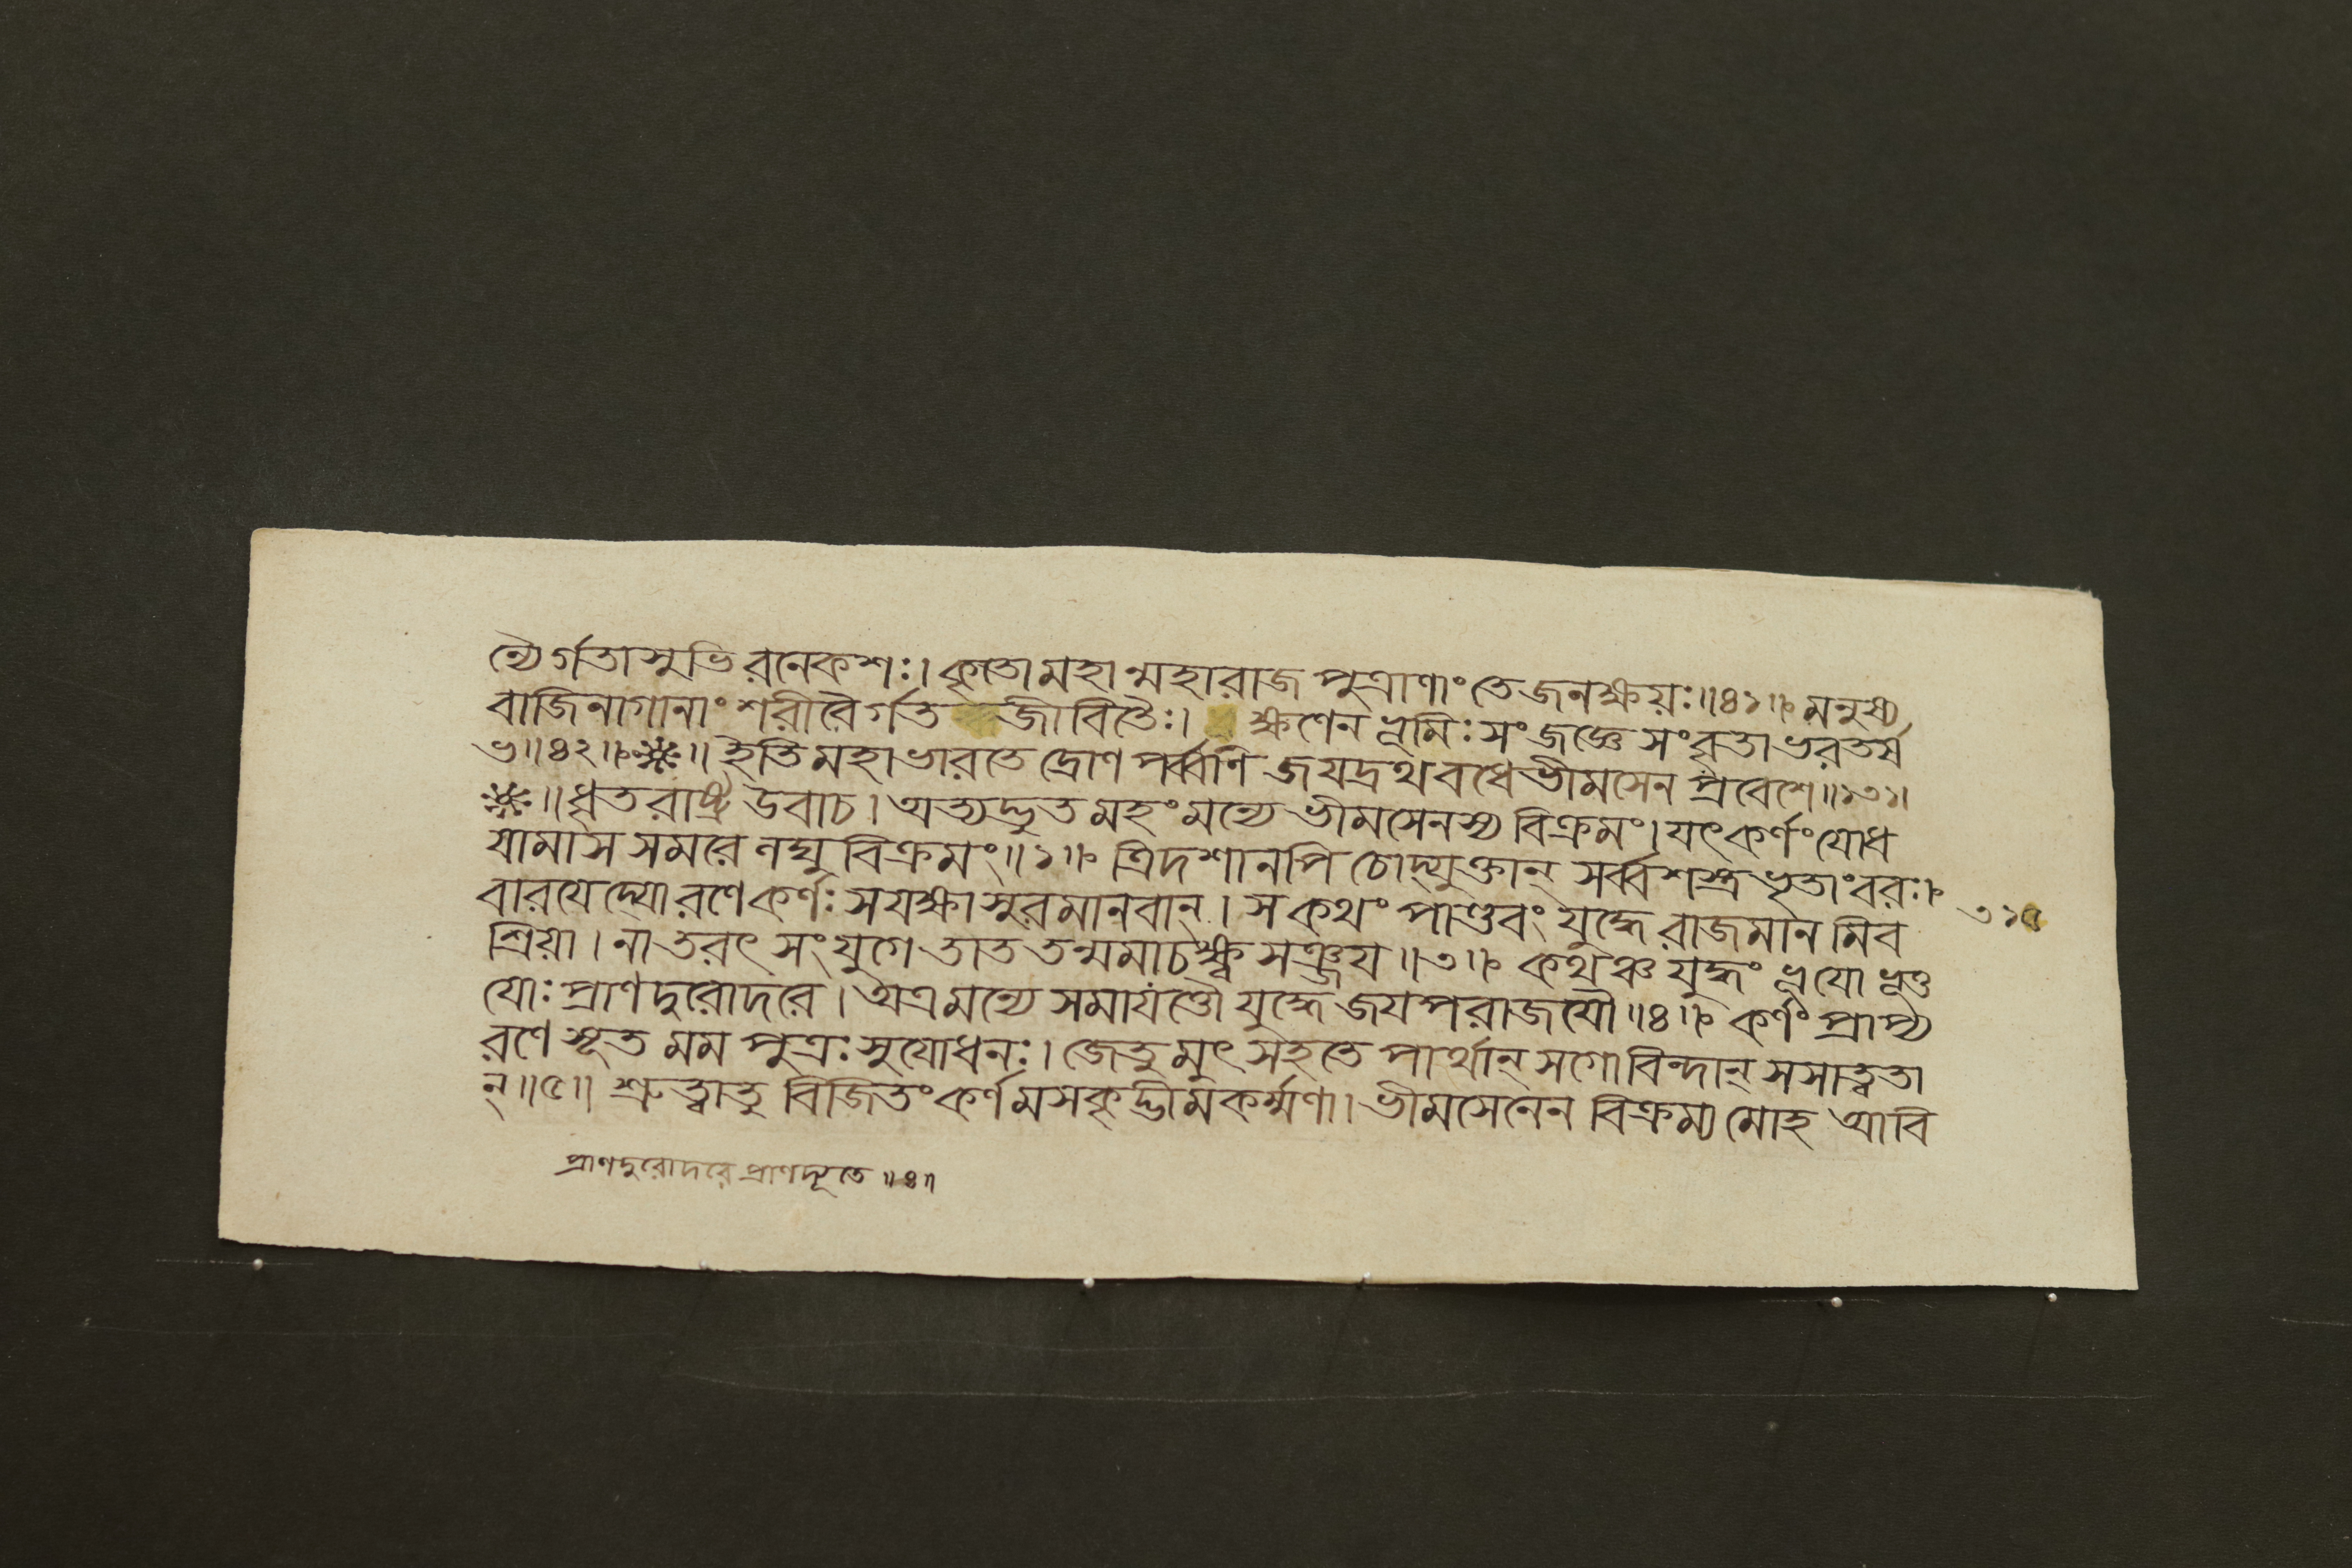 ন্যৈর্গতাসুভিরনেকশঃ। কৃতোমহান্মহারাজ পুত্রাণাং তে জনক্ষয়ঃ॥৪১॥ মনুষ্য
বাজিনাগানাং শরীরৈর্গত জীবিতৈঃ। ক্ষণেন ভূমিঃ সংজজ্ঞে সংবৃতা ভরতর্ষ
ভ॥৪২॥ ॥ ইতি মহাভারতে দ্রোণপর্ব্বণি জয়দ্রথবধে ভীমসেন প্রবেশে॥১৩১॥
॥ ধৃতরাষ্ট্র উবাচ। অত্যদ্ভুতমহং মন্যে ভীমসেনস্য বিক্রমং। যৎকর্ণং যোধ
যামাস সমরে লঘু বিক্রমং॥১॥ ত্রিদশানপি চোদ্যুক্তান্ সর্ব্বশস্ত্রভৃতাংবরঃ।
বারযেদ্যোরণেকর্ণঃ সযক্ষাসুরমানবান্। স কথং পাণ্ডবং যুদ্ধে রাজমানমিব
শ্রিয়া। নাতরৎ সংযুগে তাত তন্মমাচক্ষ্ব সঞ্জয॥৩॥ কথঞ্চ যুদ্ধং ভূযোভূত্ত
যোঃ প্রাণদুরোদরে। অত্রমন্যে সমাযত্তৌ যুদ্ধে জযপরাজযৌ॥৪॥ কর্ণং প্রাপ্য
রণে সূত মম পুত্রঃ সুযোধনঃ। জেতুমুৎসহতে পার্থান্ সগোবিন্দান্ সসাত্বতা
ন্॥৫॥ শ্রুত্বাতু বিজিতং কর্ণমসকৃদ্ভীমকর্ম্মণা। ভীমসেনেন বিক্রম্য মোহ আবি
৩১৫
প্রাণদুরোদরে প্রাণদ্যূতে॥৪॥